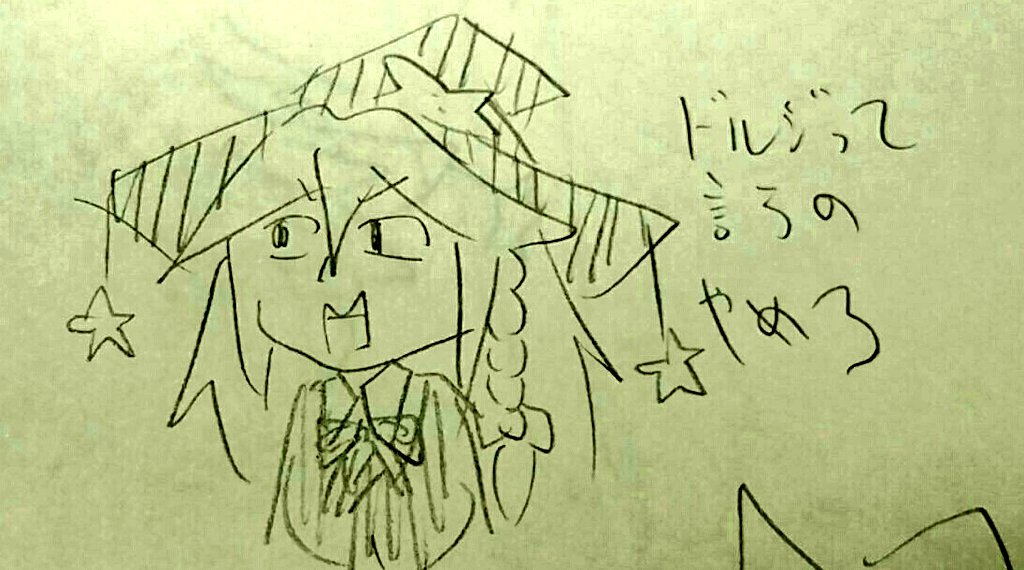 ドルジって
言うの
やめろ